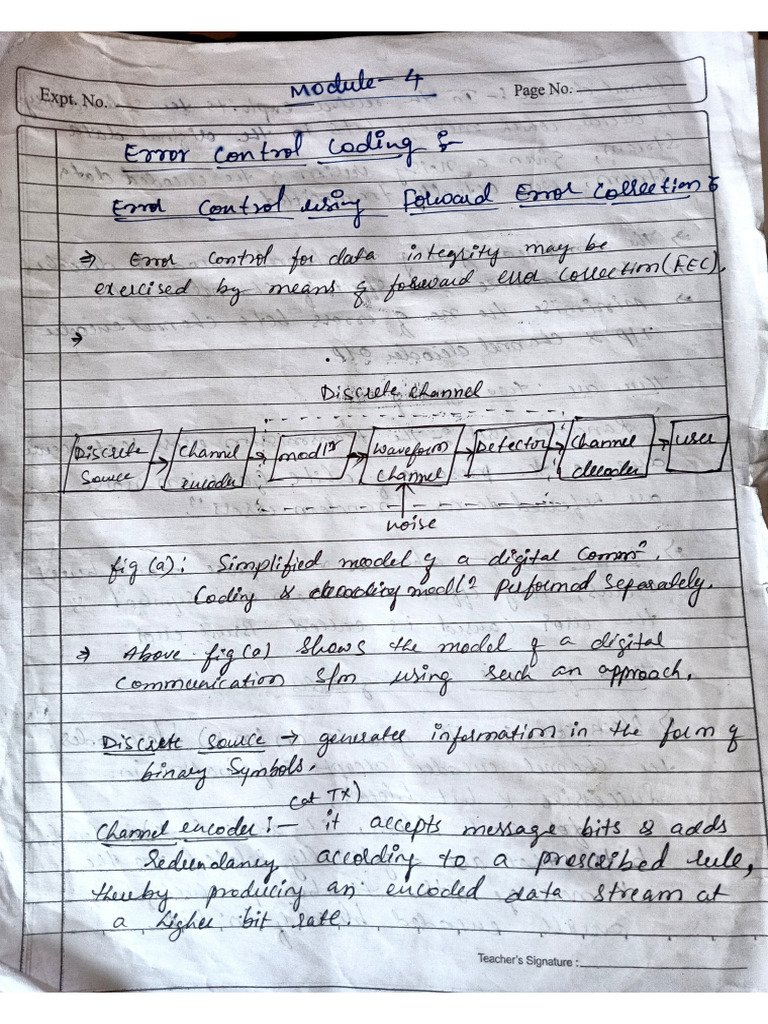 Module - 4
Expt. No.
Page No.
Error Control Coding :-
Error Control using Forward Error Collection :
⇒ Error Control for data integrity may be
exercised by means of forward error collection (FEC).
⇒
Discrete channel
Discrete Source → Channel encoder → modlr → Waveform Channel → Detector → Channel decoder → user
noise
fig (a): Simplified moodel of a digital Commn.
Coding & decoding modln performed separately.
⇒ Above fig (a) shows the model of a digital
communication s/m using such an approach,
Discrete Source → generates information in the form of
binary Symbols.
(at TX)
Channel encoder :- it accepts message bits & adds
redundancy according to a prescribed rule,
thereby producing an encoded data stream at
a higher bit rate.
Teacher's Signature :